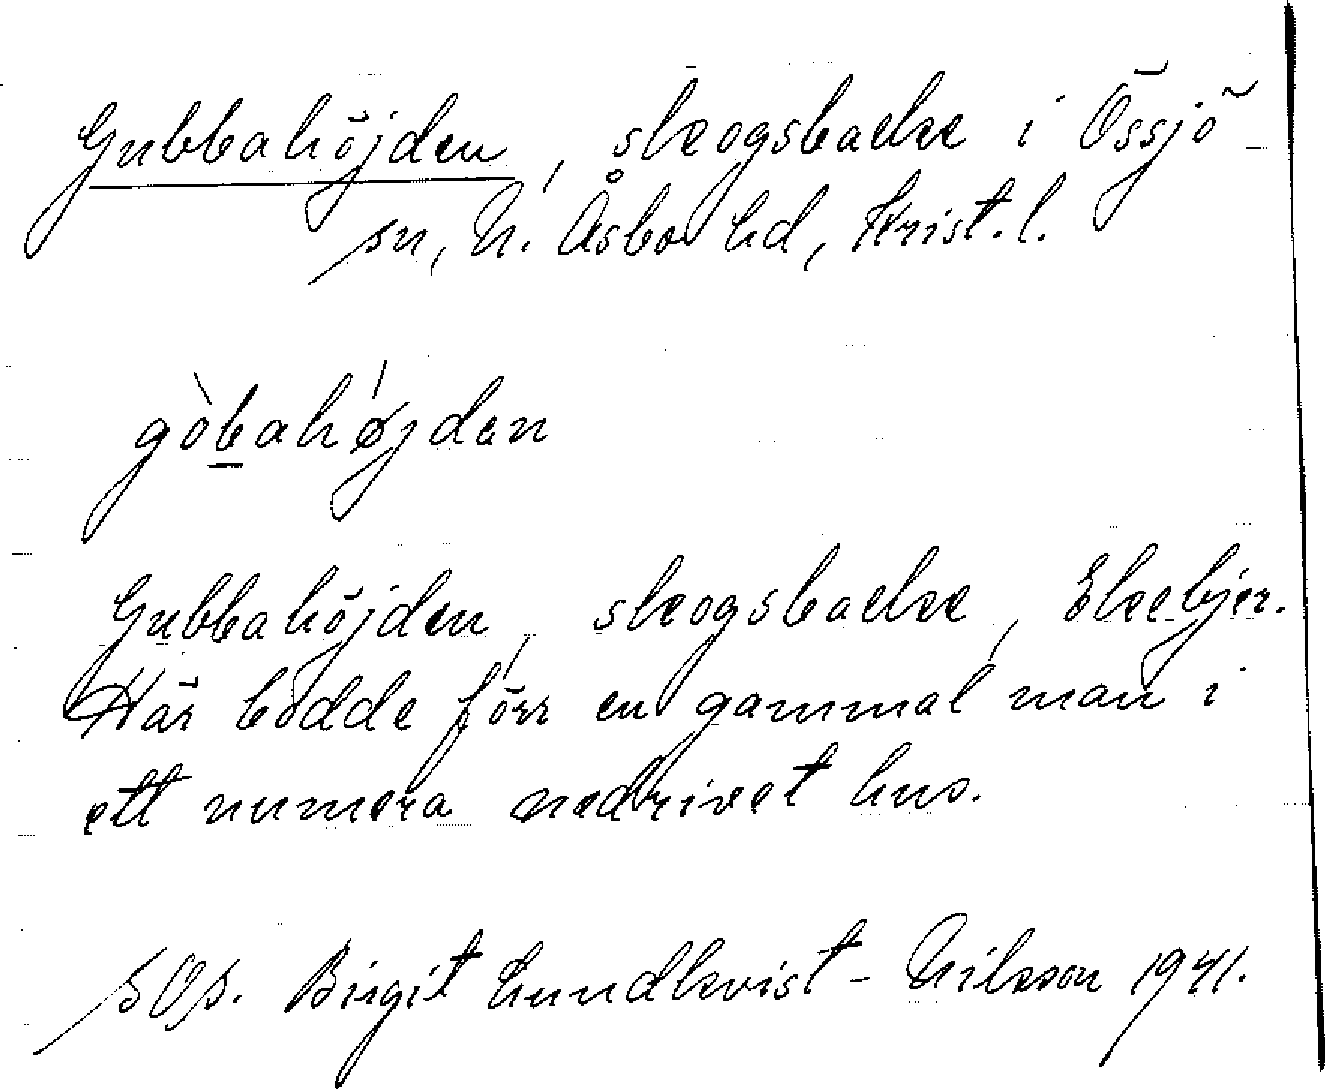 Gubbahöjden, skogsbacke i Össjö
sn, N. Åsbo hd, Krist. l.
gòbahǿjdən
Gubbahöjden, skogsbacke, Ekebjer.
Här bodde förr en gammal man i
ett numera nedrivet hus.
Birgit Lundkvist-Nilsson 1941.